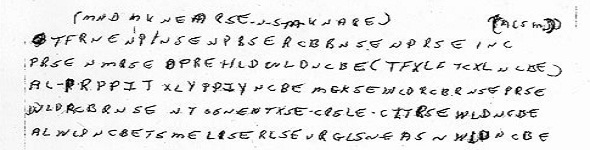 (MND MKNEARSE-N-STMKNARE) (ACSM)
TFRNENPINSENPBSERCBBNSENPRSE INC
PRSE NMRSE OPREHLDWLDNCBE(TFXLF TCXL NCBE)
AL-PRPPIT XLYPPIY NCBE MGKSEWLDRCBRNSE PRSE
WLDRCBRNSE NTSGNENTXSE-CRSLE-CITRSE WLDNCBE
ALWLDNCBETSMELRSERLSEURGLSNEASNWLDNCBE